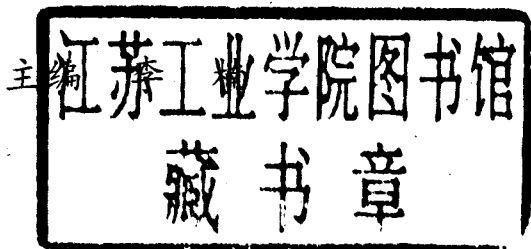 主编 李
江苏工业学院图书馆
藏书章